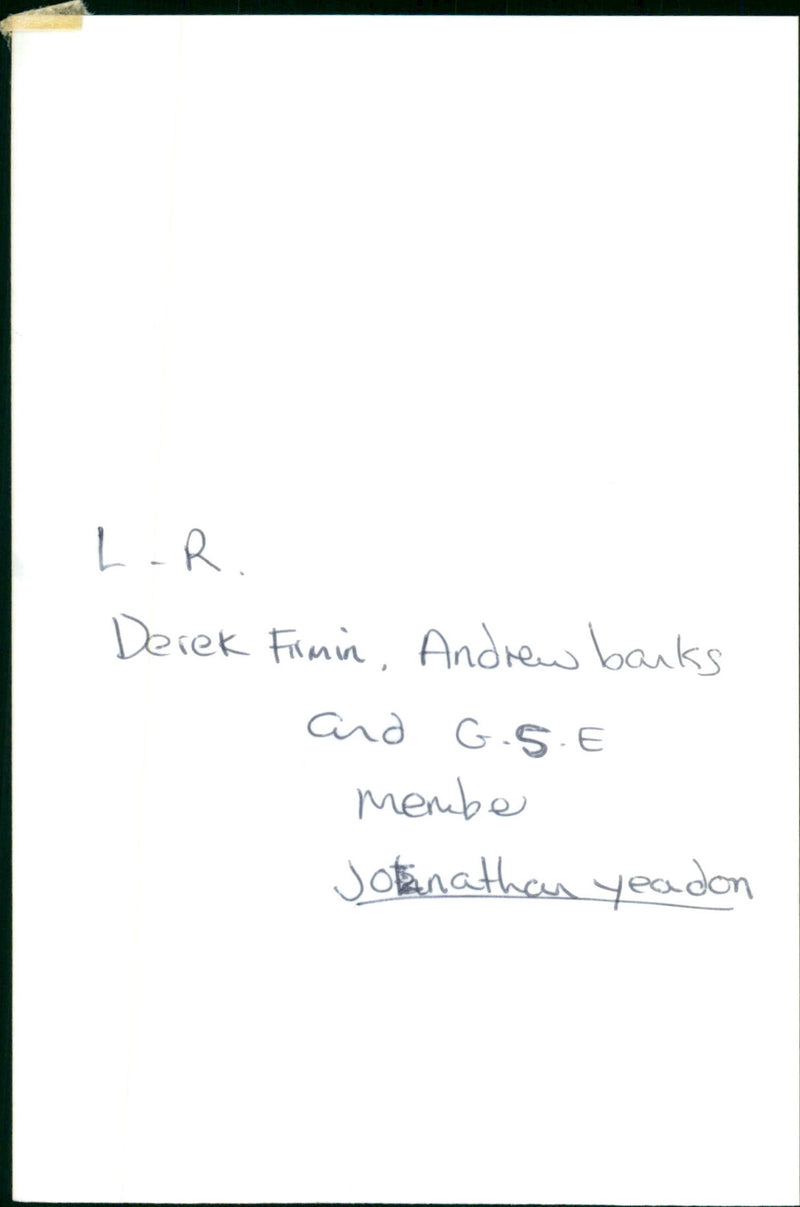 L - R.
Derek Firmin, Andrew banks
and G.S.E
member
Johnathan yeadon